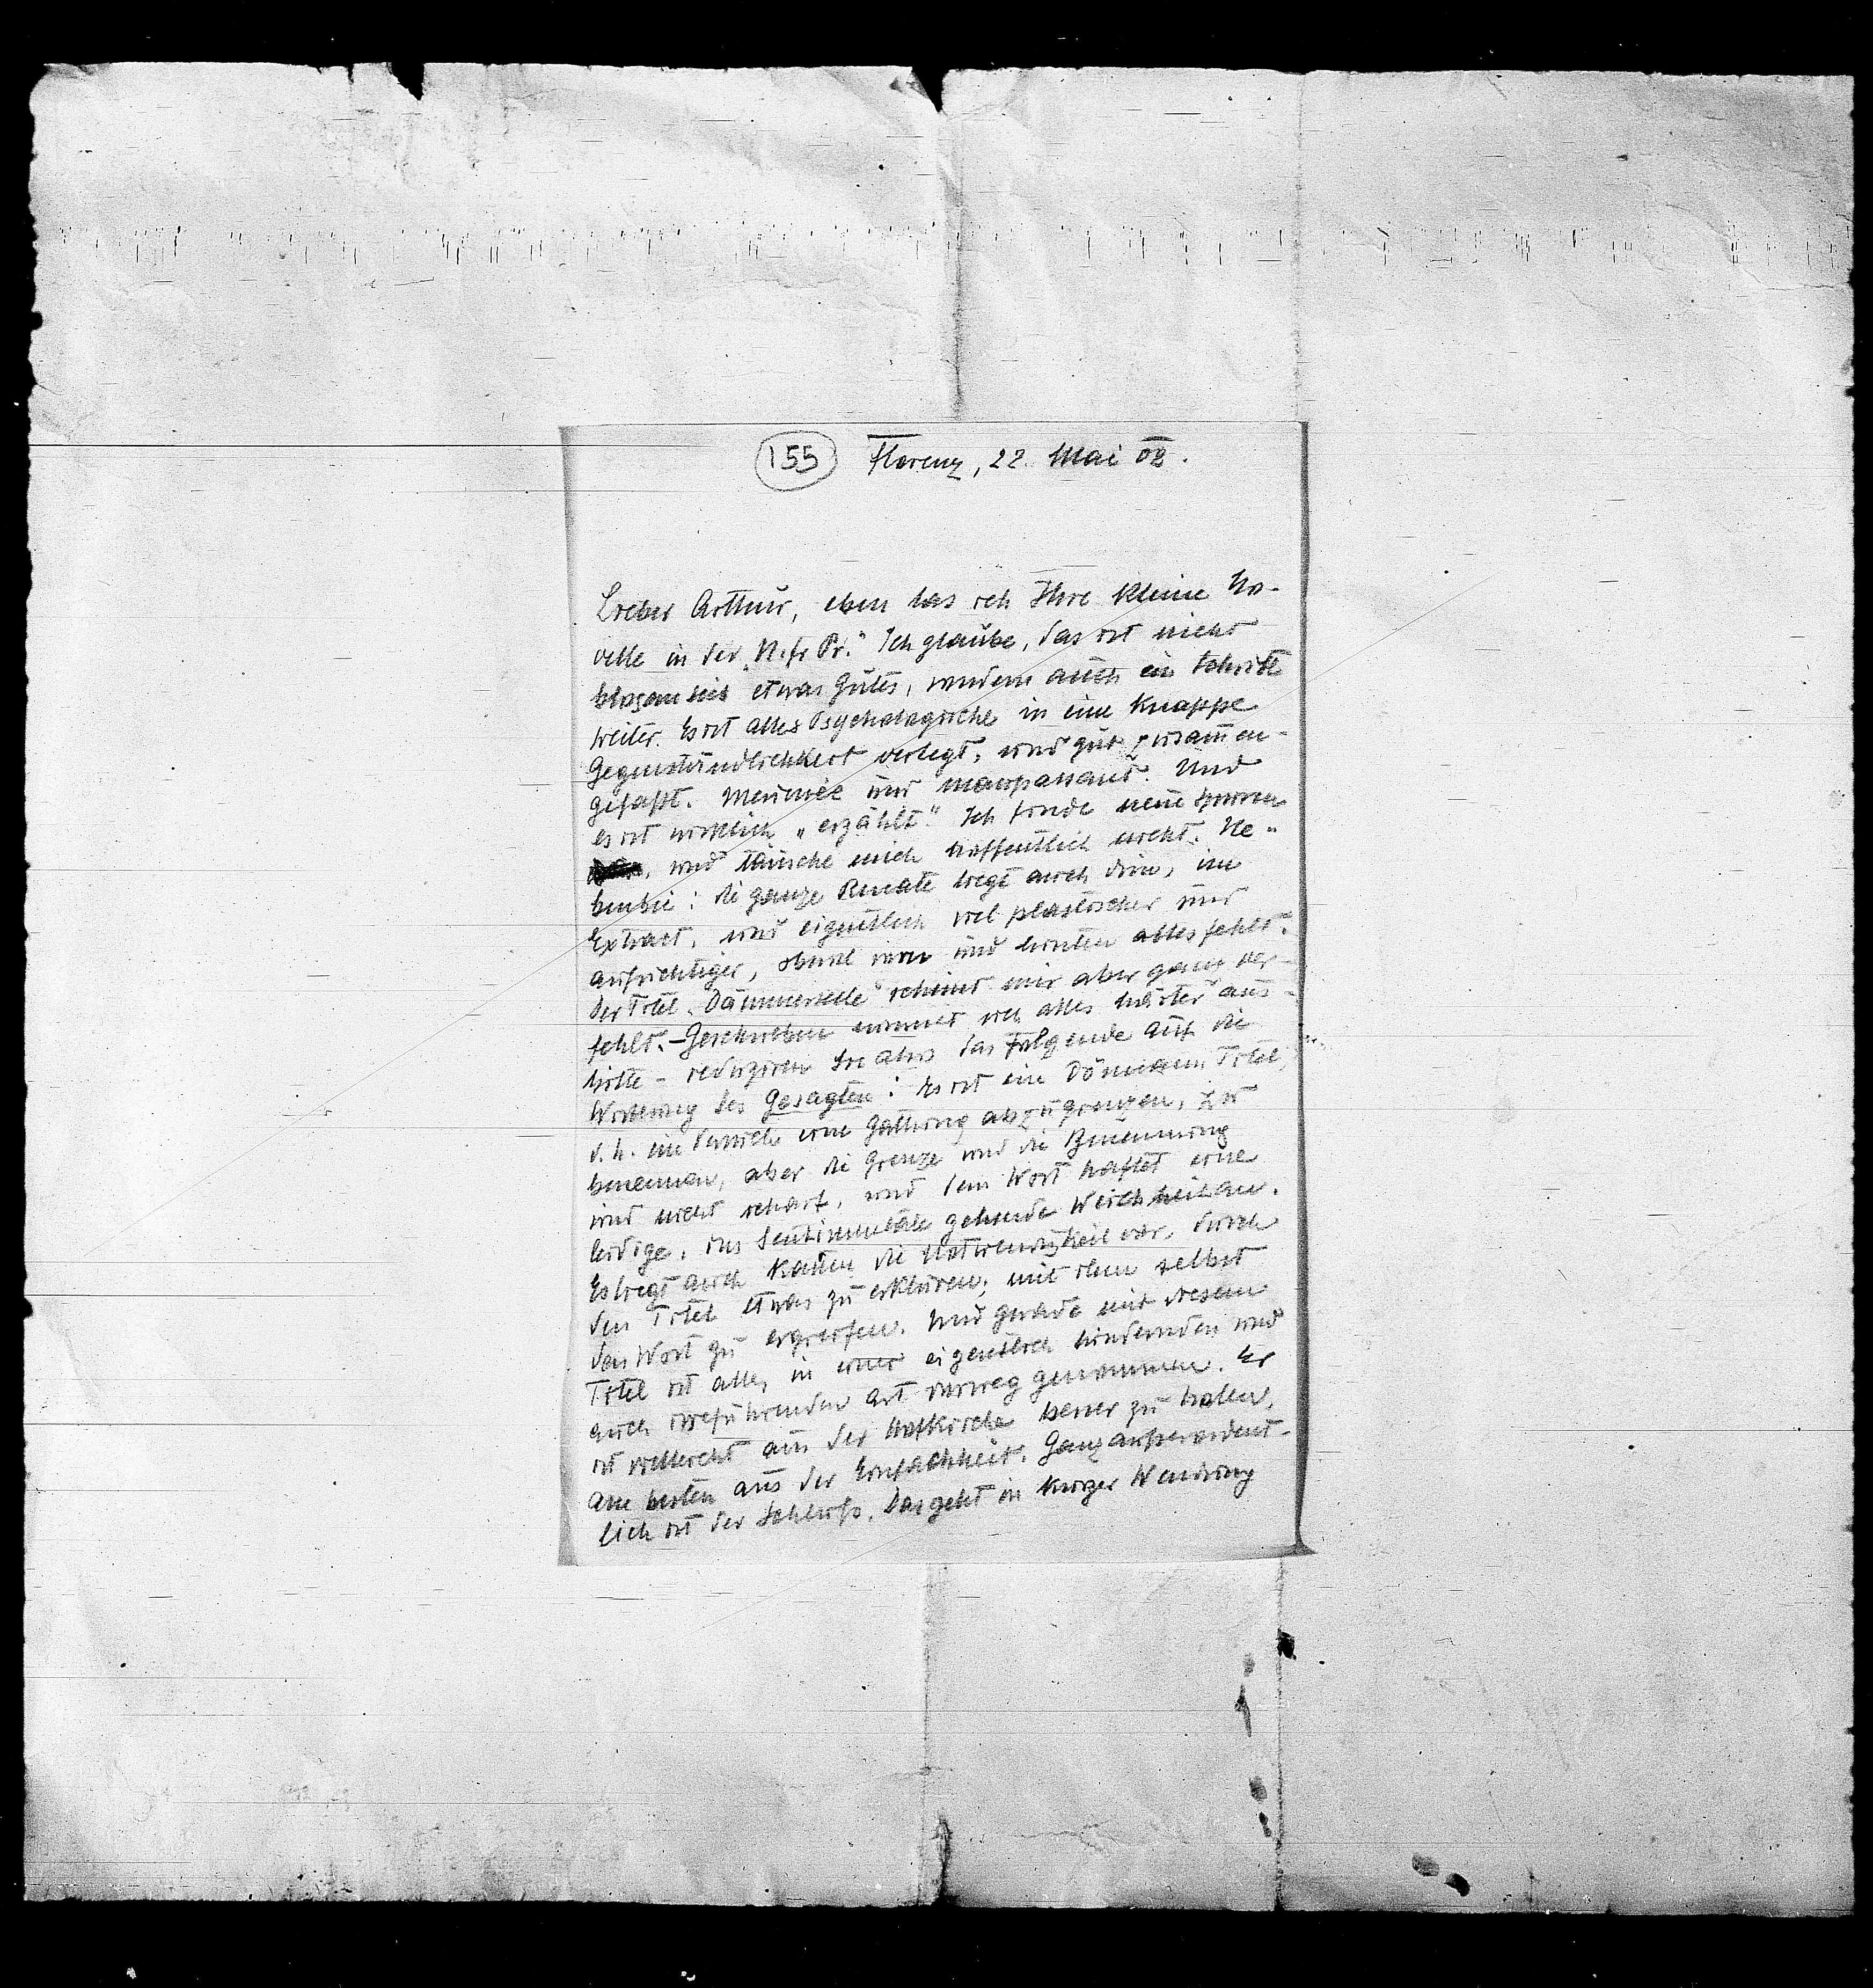 155 Florenz, 22. Mai 02.
Lieber Arthur, eben las ich Ihre kleine No-
velle in der „N. fr Pr." Ich glaube, das ist nicht
blos etwas Gutes, sondern auch ein Schritt
weiter. Es ist alles Psychologische in eine knappe
Gegenständlichkeit verlegt, und gut zusam̄en-
gefaßt. Merimée und Maupassant. Und
es ist wirklich „erzählt." Ich finde neue Spuren
, und täusche mich hoffentlich nicht. Ne-
benbei: die ganze Renate liegt auch drin, im
Extract, und eigentlich viel plastischer und
aufrichtiger, obwol vorn und hinten alles fehlt.
Der Titel „Dämmerseele" scheint mir aber ganz ver-
fehlt. – Geschrieben nimmt sich alles härter aus –
bitte – reduziren Sie also das Folgende auf die
Wirkung des Gesagten: Es ist ein Dörmann Titel,
d. h. ein Versuch eine Gattung abzugrenzen, zu
benennen, aber die Grenze und die Benennung
sind nicht scharf, und dem Wort haftet eine
leidige, ins Sentimentale gehende Weichheit an.
Es liegt auch kaum die Notwendigkeit vor, durch
den Titel etwas zu erklären, mit ihm selbst
das Wort zu ergreifen. Und gerade mit diesem
Titel ist alles in einer eigentlich hindernden und
auch irreführenden Art vorweg genommen. Er
ist vielleicht aus der Hofkirche besser zu holen,
am besten aus der Einfachheit. Ganz außerordent-
lich ist der Schluß. Das geht in kurzer Wendung